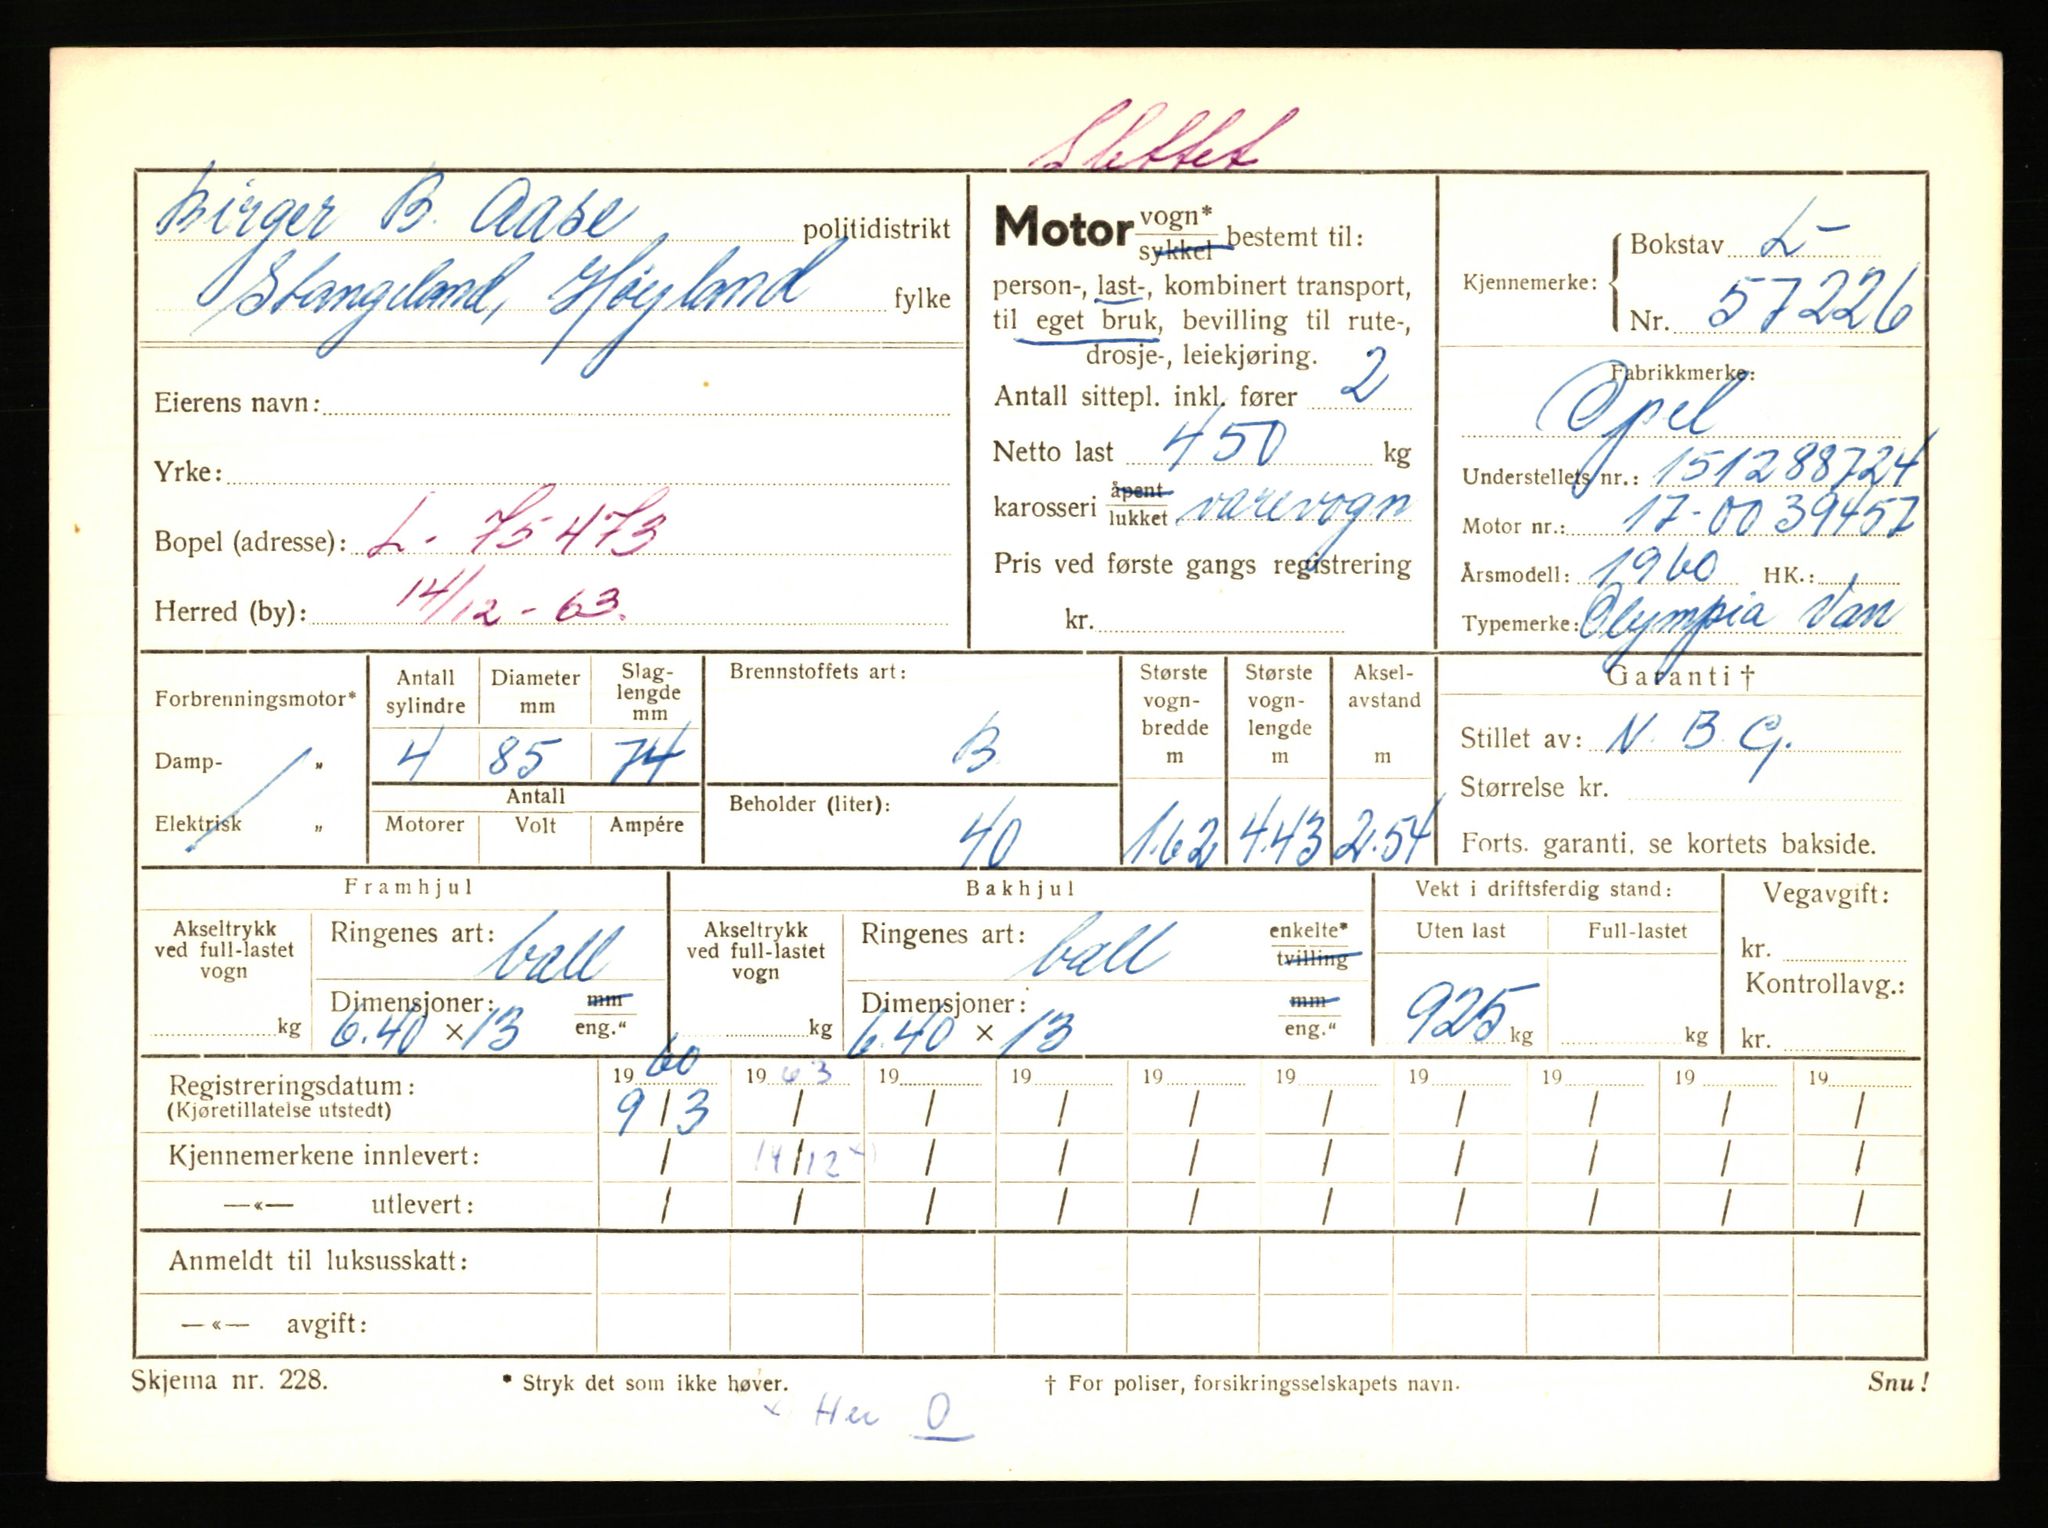 Slettet
Birger B. Aase politidistrikt
Stangeland, Høyland fylke
Eierens navn:
Yrke:
Bopel (adresse): L - 75473
Herred (by): 14/12 - 63.
Motor vogn* sykkel bestemt til:
person-, last-, kombinert transport,
til eget bruk, bevilling til rute-,
drosje-, leiekjøring.
Antall sittepl. inkl. fører 2
Netto last 450 kg
karosseri åpent lukket varevogn
Pris ved første gangs registrering
kr.
Kjennemerke: Bokstav L-
Nr. 57226
Fabrikkmerke:
Opel
Understellets nr.: 151288724
Motor nr.: 17-0039457
Årsmodell: 1960 HK.:
Typemerke: Olympia Van
Forbrenningsmotor*
Damp- „
Elektrisk „
Antall sylindre Diameter mm Slag-lengde mm
4 85 74
Antall
Motorer Volt Ampére
Brennstoffets art:
B
Beholder (liter):
40
Største vogn-bredde m
1.62
Største vogn-lengde m
4.43
Aksel-avstand m
2.54
Garanti †
Stillet av: N. B. G.
Størrelse kr.
Forts. garanti, se kortets bakside.
Framhjul
Akseltrykk ved full-lastet vogn
kg
Ringenes art: ball
Dimensjoner: mm
6.40 × 13 eng."
Bakhjul
Akseltrykk ved full-lastet vogn
kg
Ringenes art: ball enkelte* tvilling
Dimensjoner: mm
6.40 × 13 eng."
Vekt i driftsferdig stand:
Uten last Full-lastet
925 kg kg
Vegavgift:
kr.
Kontrollavg.:
kr.
Registreringsdatum: 1960 1963 19 19 19 19 19 19 19 19
(Kjøretillatelse utstedt) 9/3 / / / / / / / / /
Kjennemerkene innlevert: / 14/12 x) / / / / / / / /
—«— utlevert: / / / / / / / / / /
Anmeldt til luksusskatt:
—«— avgift:
Skjema nr. 228. * Stryk det som ikke høver. † For poliser, forsikringsselskapets navn. Snu!
x Her 0